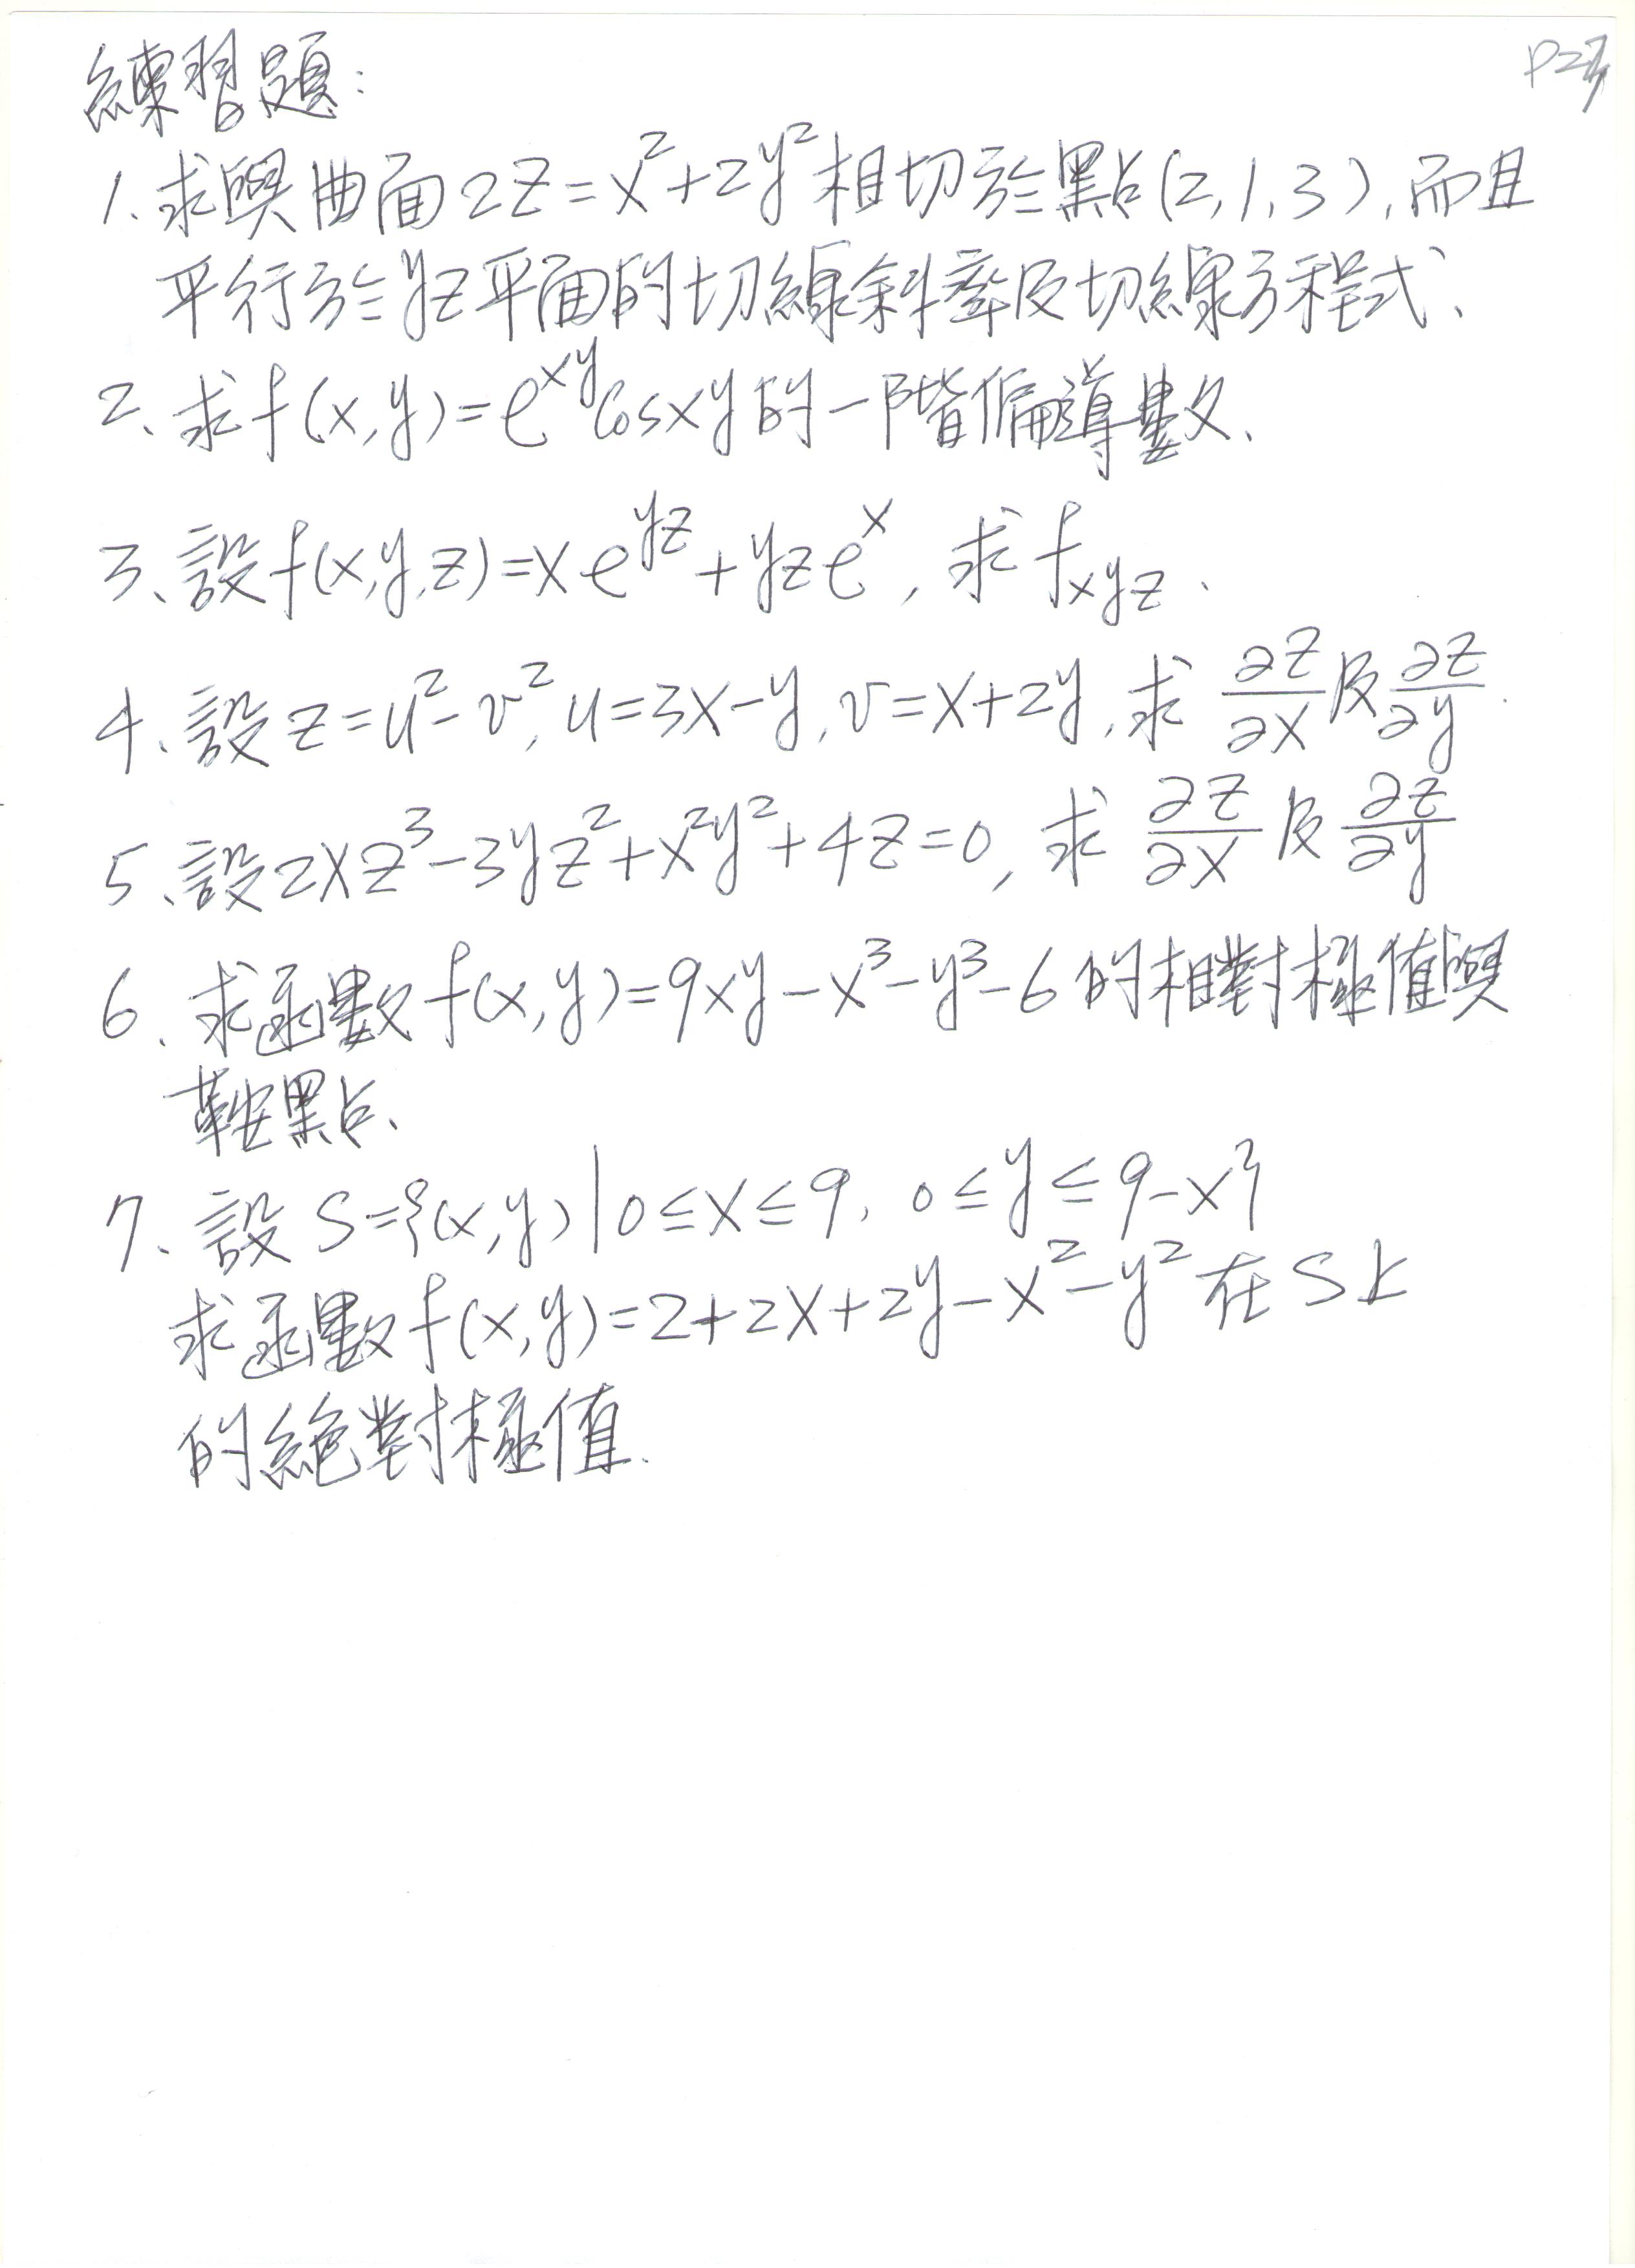 練習題:
1、求與曲面2z=x²+2y²相切於點(2,1,3),而且
平行於yz平面的切線斜率及切線方程式、
2、求f(x,y)=e^{xy}cosxy的一階偏導數、
3、設f(x,y,z)=xe^{yz}+yze^x, 求f_{xyz}、
4、設z=u²-v²,u=3x-y,v=x+2y,求∂z/∂x及∂z/∂y.
5、設2xz³-3yz²+x²y²+4z=0, 求∂z/∂x及∂z/∂y
6、求函數f(x,y)=9xy-x³-y³-6的相對極值與
鞍點、
7、設S={(x,y)|0≤x≤9, 0≤y≤9-x}
求函數f(x,y)=2+2x+2y-x²-y²在S上
的絕對極值.